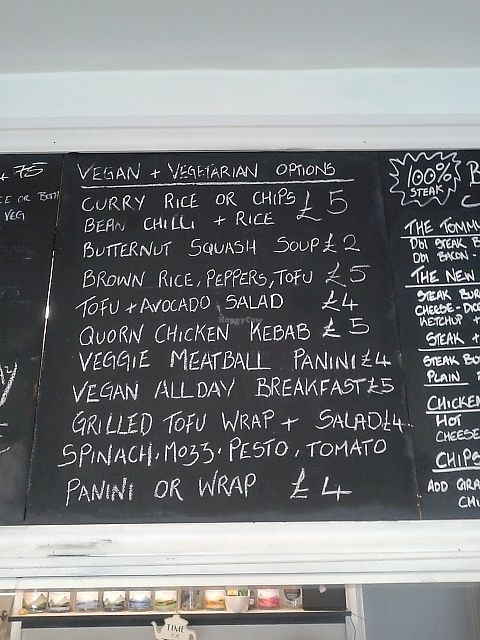 75
OR BOTH
VEG
VEGAN + VEGETARIAN OPTIONS
CURRY RICE OR CHIPS £5
BEAN CHILLI + RICE
BUTTERNUT SQUASH SOUP £2
BROWN RICE, PEPPERS, TOFU £5
TOFU + AVOCADO SALAD £4
QUORN CHICKEN KEBAB £5
VEGGIE MEATBALL PANINI £4
VEGAN ALL DAY BREAKFAST £5
GRILLED TOFU WRAP + SALAD £4
SPINACH, MOZZ, PESTO, TOMATO
PANINI OR WRAP £4
100%
STEAK
THE TOMM
Dbl STEAK B
Dbl BACON -
THE NEW
STEAK BU
CHEESE - DIC
KETCHUP +
STEAK +
STEAK BU
PLAIN
CHICKEN
HOT
CHEESE
CHIPS
ADD
CH
HappyCow
TIME